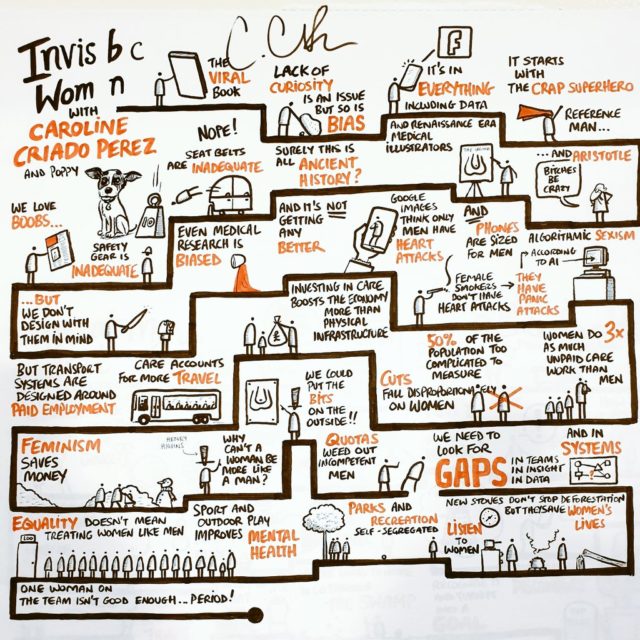 Invis b c
Wom n
WITH
CAROLINE
CRIADO PEREZ
AND POPPY
THE
VIRAL
BOOK
LACK OF
CURIOSITY
IS AN ISSUE
BUT SO IS
BIAS
f
IT'S IN
EVERYTHING
INCLUDING DATA
AND RENAISSANCE ERA
MEDICAL
ILLUSTRATORS
IT STARTS
WITH
THE CRAP SUPERHERO
REFERENCE
MAN...
...AND ARISTOTLE
BITCHES
BE
CRAZY
NOPE!
SEAT BELTS
ARE INADEQUATE
SURELY THIS IS
ALL ANCIENT
HISTORY?
WE LOVE
BOOBS...
SAFETY
GEAR IS
INADEQUATE
EVEN MEDICAL
RESEARCH IS
BIASED
AND IT'S NOT
GETTING
ANY
BETTER
GOOGLE
IMAGES
THINK ONLY
MEN HAVE
HEART
ATTACKS
AND
PHONES
ARE SIZED
FOR MEN
ALGORITHMIC SEXISM
ACCORDING
TO AI
FEMALE
SMOKERS
DON'T HAVE
HEART ATTACKS
THEY
HAVE
PANIC
ATTACKS
...BUT
WE DON'T
DESIGN WITH
THEM IN MIND
INVESTING IN CARE
BOOSTS THE ECONOMY
MORE THAN
PHYSICAL
INFRASTRUCTURE
£
BUT TRANSPORT
SYSTEMS ARE
DESIGNED AROUND
PAID EMPLOYMENT
CARE ACCOUNTS
FOR MORE TRAVEL
WE COULD
PUT THE
BITS
ON THE
OUTSIDE!!
50% OF THE
POPULATION TOO
COMPLICATED TO
MEASURE
CUTS
FALL DISPROPORTIONATELY
ON WOMEN
WOMEN DO 3x
AS MUCH
UNPAID CARE
WORK THAN
MEN
FEMINISM
SAVES
MONEY
HENRY
HIGGINS
WHY
CAN'T A
WOMAN BE
MORE LIKE
A MAN?
QUOTAS
WEED OUT
INCOMPETENT
MEN
WE NEED TO
LOOK FOR
GAPS
IN TEAMS
IN INSIGHT
IN DATA
AND IN
SYSTEMS
EQUALITY DOESN'T MEAN
TREATING WOMEN LIKE MEN
SPORT AND
OUTDOOR PLAY
IMPROVES MENTAL
HEALTH
PARKS AND
RECREATION
SELF-SEGREGATED
NEW STOVES DON'T STOP DEFORESTATION
BUT THEY SAVE WOMEN'S
LIVES
LISTEN
TO
WOMEN
LOO
ONE WOMAN ON
THE TEAM ISN'T GOOD ENOUGH... PERIOD!